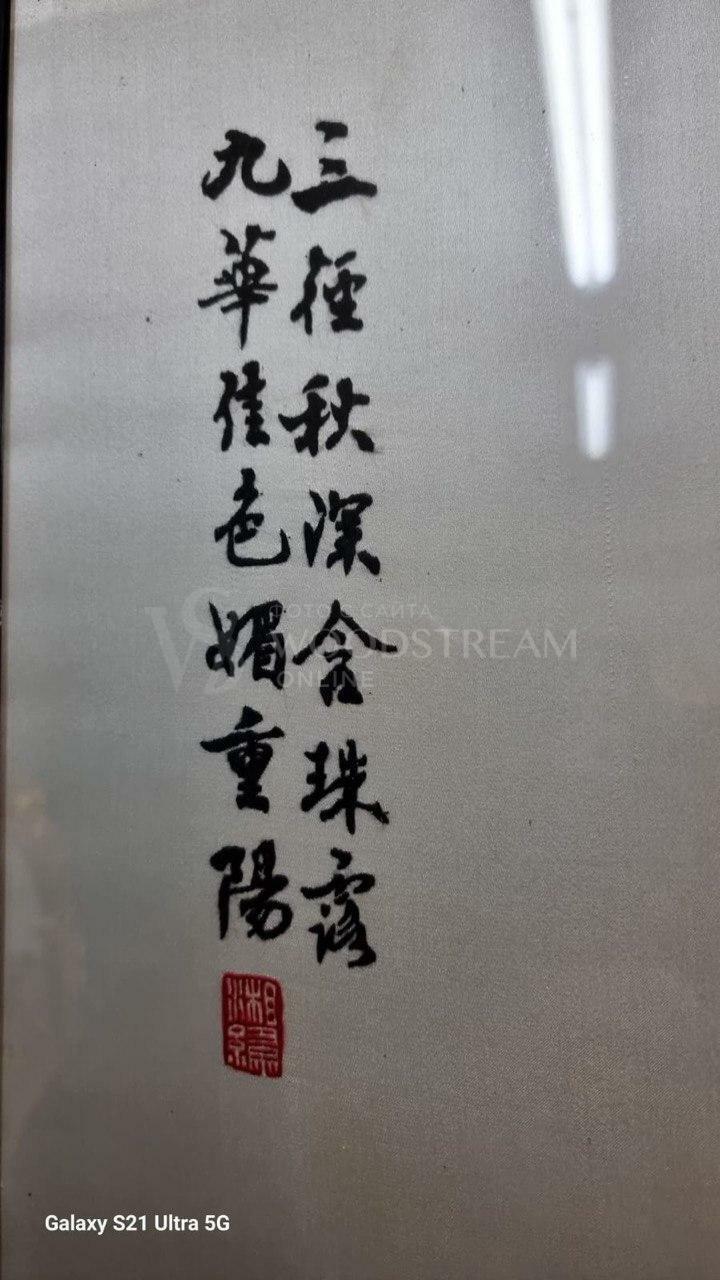 三徑秋深含珠露
九華佳色媚重陽
湘繡
ФОТО С САЙТА
WOODSTREAM
ONLINE
Galaxy S21 Ultra 5G